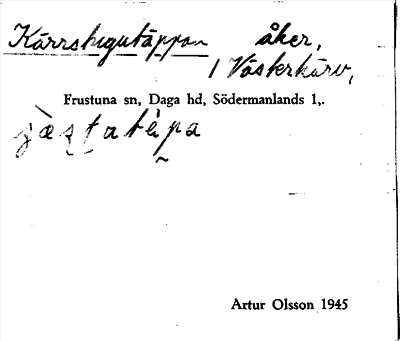 Kärrstugutäppan åker,
/ Västerkärv,
Frustuna sn, Daga hd, Södermanlands l,.
Artur Olsson 1945